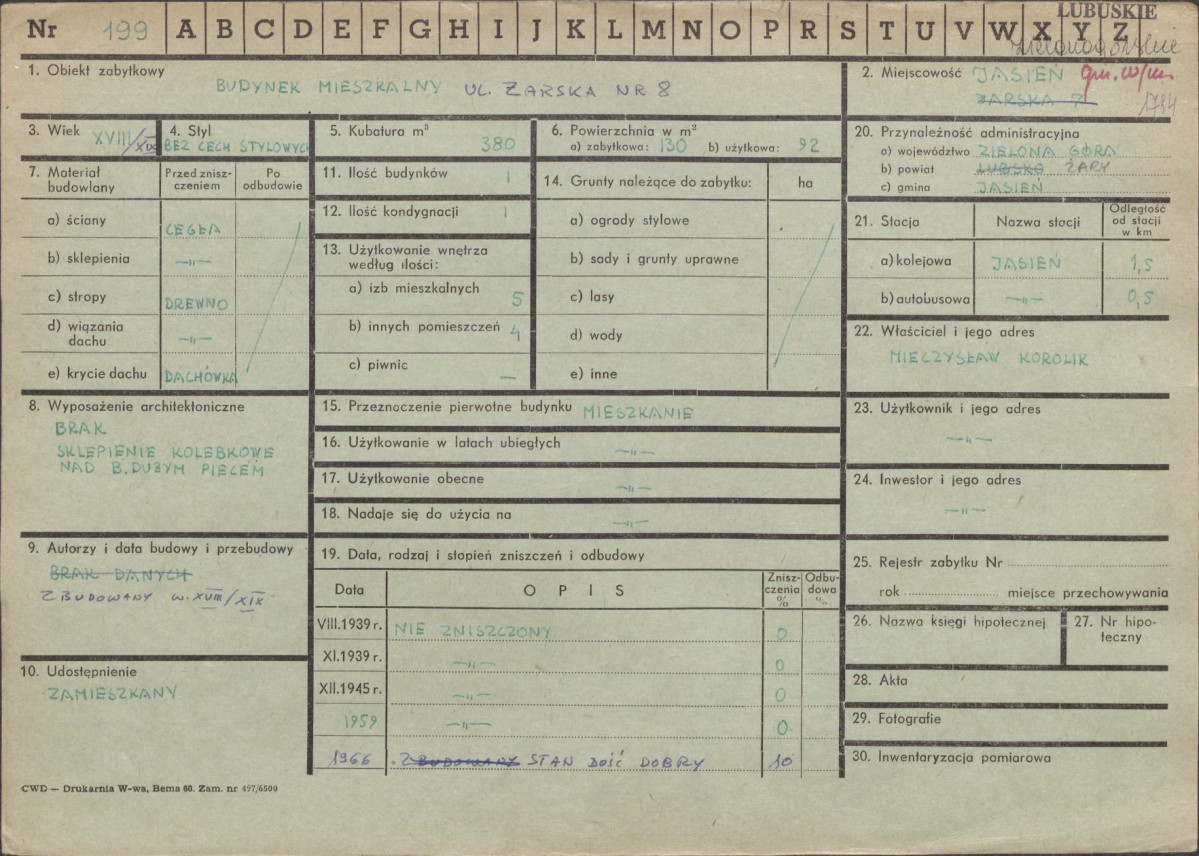 LUBUSKIE
Nr 199 A B C D E F G H I J K L M N O P R S T U V W X Y Z
zielonogórskie
1. Obiekt zabytkowy
BUDYNEK MIESZKALNY UL. ŻARSKA NR 8
2. Miejscowość JASIEŃ gm. w/m.
ŻARSKA 7
1794
3. Wiek XVIII/XIX
4. Styl
BEZ CECH STYLOWYCH
5. Kubatura m³
380
6. Powierzchnia w m²
a) zabytkowa: 130 b) użytkowa: 92
20. Przynależność administracyjna
a) województwo ZIELONA GÓRA
b) powiat LUBSKO ŻARY
c) gmina JASIEŃ
7. Materiał budowlany
Przed zniszczeniem
Po odbudowie
a) ściany CEGŁA
b) sklepienia —„—
c) stropy DREWNO
d) wiązania dachu —„—
e) krycie dachu DACHÓWKA
11. Ilość budynków 1
12. Ilość kondygnacji 1
13. Użytkowanie wnętrza
według ilości:
a) izb mieszkalnych 5
b) innych pomieszczeń 4
c) piwnic —
14. Grunty należące do zabytku: ha
a) ogrody stylowe
b) sady i grunty uprawne
c) lasy
d) wody
e) inne
21. Stacja Nazwa stacji Odległość od stacji w km
a) kolejowa JASIEŃ 1,5
b) autobusowa —„— 0,5
22. Właściciel i jego adres
MIECZYSŁAW KOROLIK
8. Wyposażenie architektoniczne
BRAK
SKLEPIENIE KOLEBKOWE
NAD B. DUŻYM PIECEM
15. Przeznoczenie pierwotne budynku MIESZKANIE
16. Użytkowanie w latach ubiegłych —„—
17. Użytkowanie obecne —„—
18. Nadaje się do użycia na —„—
23. Użytkownik i jego adres
—„—
24. Inwestor i jego adres
—„—
9. Autorzy i data budowy i przebudowy
BRAK DANYCH
ZBUDOWANY W. XVIII/XIX
10. Udostępnienie
ZAMIESZKANY
19. Data, rodzaj i stopień zniszczeń i odbudowy
Data OPIS Zniszczenia % Odbudowa %
VIII.1939 r. NIE ZNISZCZONY 0
XI.1939 r. —„— 0
XII.1945 r. —„— 0
1959 —„— 0
1966 ZBUDOWANY STAN DOŚĆ DOBRY 10
25. Rejestr zabytku Nr
rok miejsce przechowywania
26. Nazwa księgi hipotecznej
27. Nr hipoteczny
28. Akta
29. Fotografie
30. Inwentaryzacja pomiarowa
CWD — Drukarnia W-wa, Bema 60. Zam. nr 497/6500